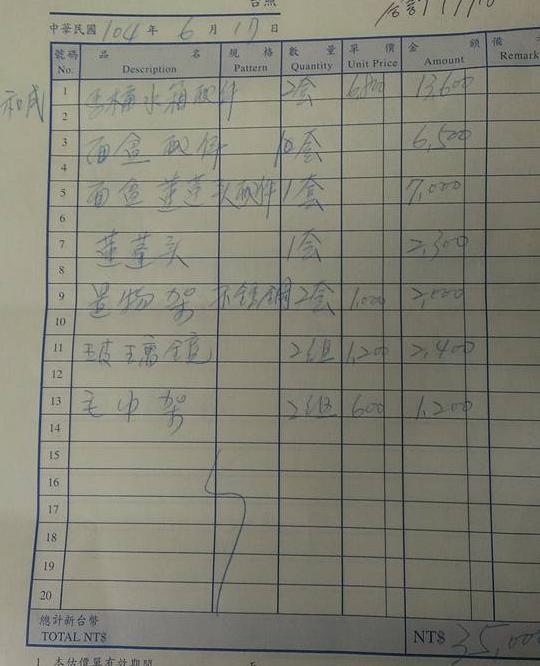 台照
中華民國 104 年 6 月 17 日
號碼 No. 品名 Description 規格 Pattern 數量 Quantity 單價 Unit Price 金額 Amount 備 Remark
和成 1 馬桶水箱配件 2套 6,800 13,600
2
3 面盆配件 10套 6,500
4
5 面盆蓮蓬頭配件 1套 7,000
6
7 蓮蓬头 1套 2,300
8
9 置物架 不銹鋼 2套 1,000 2,000
10
11 玻璃鏡 2組 1,200 2,400
12
13 毛巾架 2組 600 1,200
14
15
16
17
18
19
20
總計新台幣
TOTAL NT$ NT$ 35,000
1 本估價單有效期間